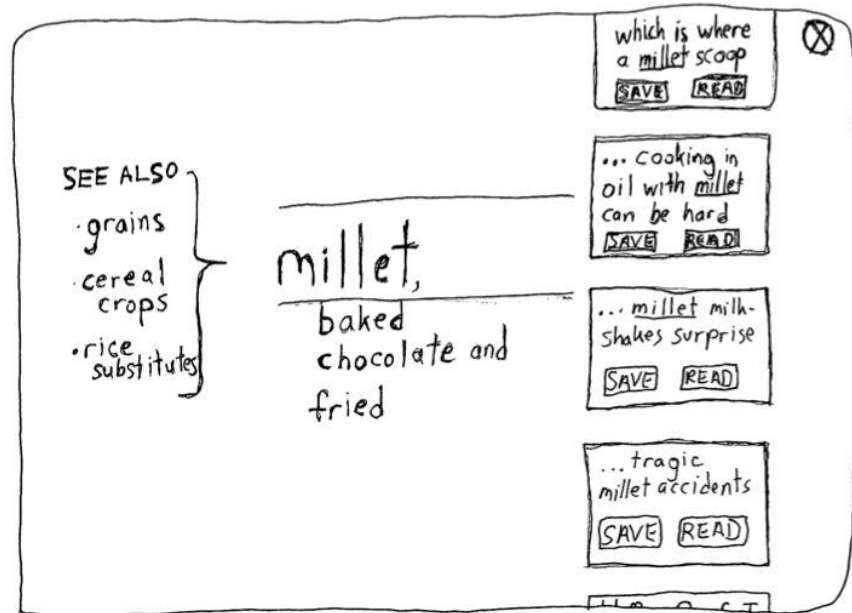 SEE ALSO
·grains
·cereal
crops
·rice
substitutes
millet,
baked
chocolate and
fried
which is where
a millet scoop
SAVE READ
... cooking in
oil with millet
can be hard
SAVE READ
... millet milk-
shakes surprise
SAVE READ
...tragic
millet accidents
SAVE READ